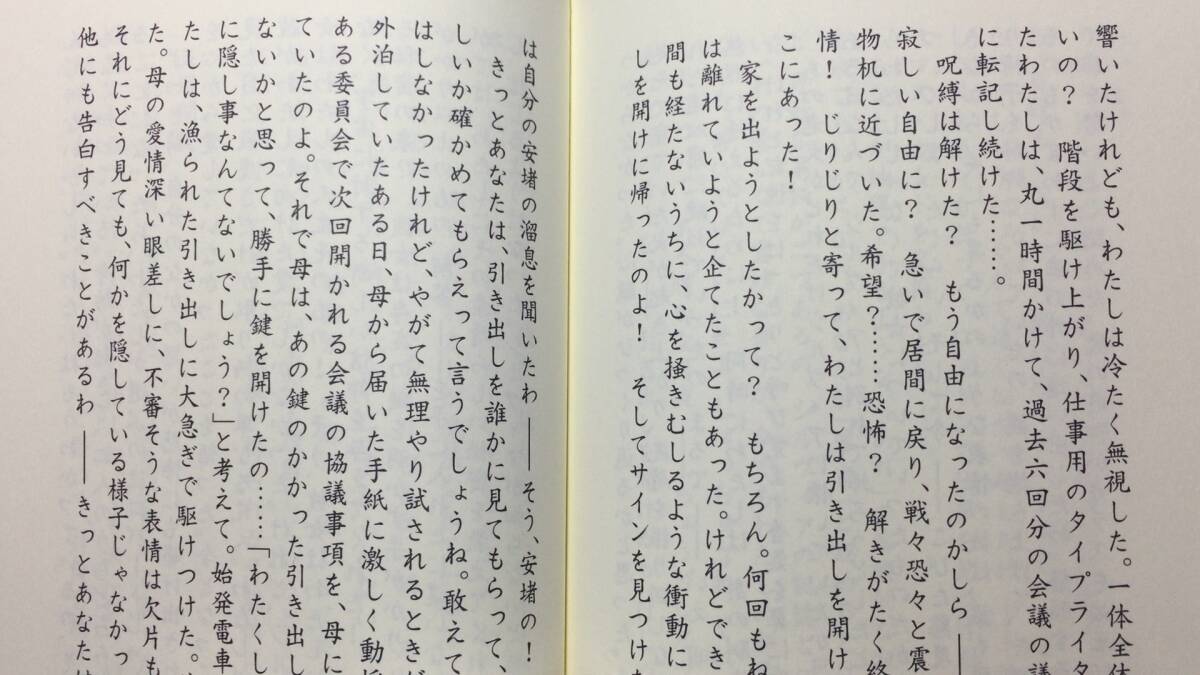 響いたけれども、わたしは冷たく無視した。一体全体
いの?　階段を駆け上がり、仕事用のタイプライタ
たわたしは、丸一時間かけて、過去六回分の会議の議
に転記し続けた……。
呪縛は解けた?　もう自由になったのかしら――
寂しい自由に?　急いで居間に戻り、戦々恐々と震
物机に近づいた。希望?……恐怖?　解きがたく終
情!　じりじりと寄って、わたしは引き出しを開け
こにあった!
家を出ようとしたかって?　もちろん。何回もね
は離れていようと企てたこともあった。けれどでき
間も経たないうちに、心を掻きむしるような衝動に
しを開けに帰ったのよ!　そしてサインを見つけた
は自分の安堵の溜息を聞いたわ――そう、安堵の!
きっとあなたは、引き出しを誰かに見てもらって、
しいか確かめてもらえって言うでしょうね。敢えて
はしなかったけれど、やがて無理やり試されるときが
外泊していたある日、母から届いた手紙に激しく動揺
ある委員会で次回開かれる会議の協議事項を、母に
ていたのよ。それで母は、あの鍵のかかった引き出し
ないかと思って、勝手に鍵を開けたの……「わたくし
に隠し事なんてないでしょう?」と考えて。始発電車
たしは、漁られた引き出しに大急ぎで駆けつけた。
た。母の愛情深い眼差しに、不審そうな表情は欠片も
それにどう見ても、何かを隠している様子じゃなかっ
他にも告白すべきことがあるわ――きっとあなたは